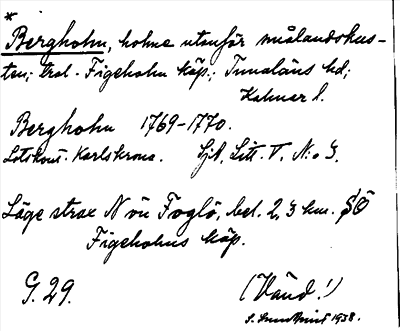 *
Bergholm, holme utanför smålandskus-
ten; trol. Figeholm köp.; Tunaläns hd;
Kalmar l.
Bergholm 1769-1770.
Lotskont. Karlskrona. Sjk. Litt. V. No 3.
Läge strax N ön Foglö, bel. 2,3 km. SÖ
Figeholms köp.
G. 29. (Vänd!)
1938.